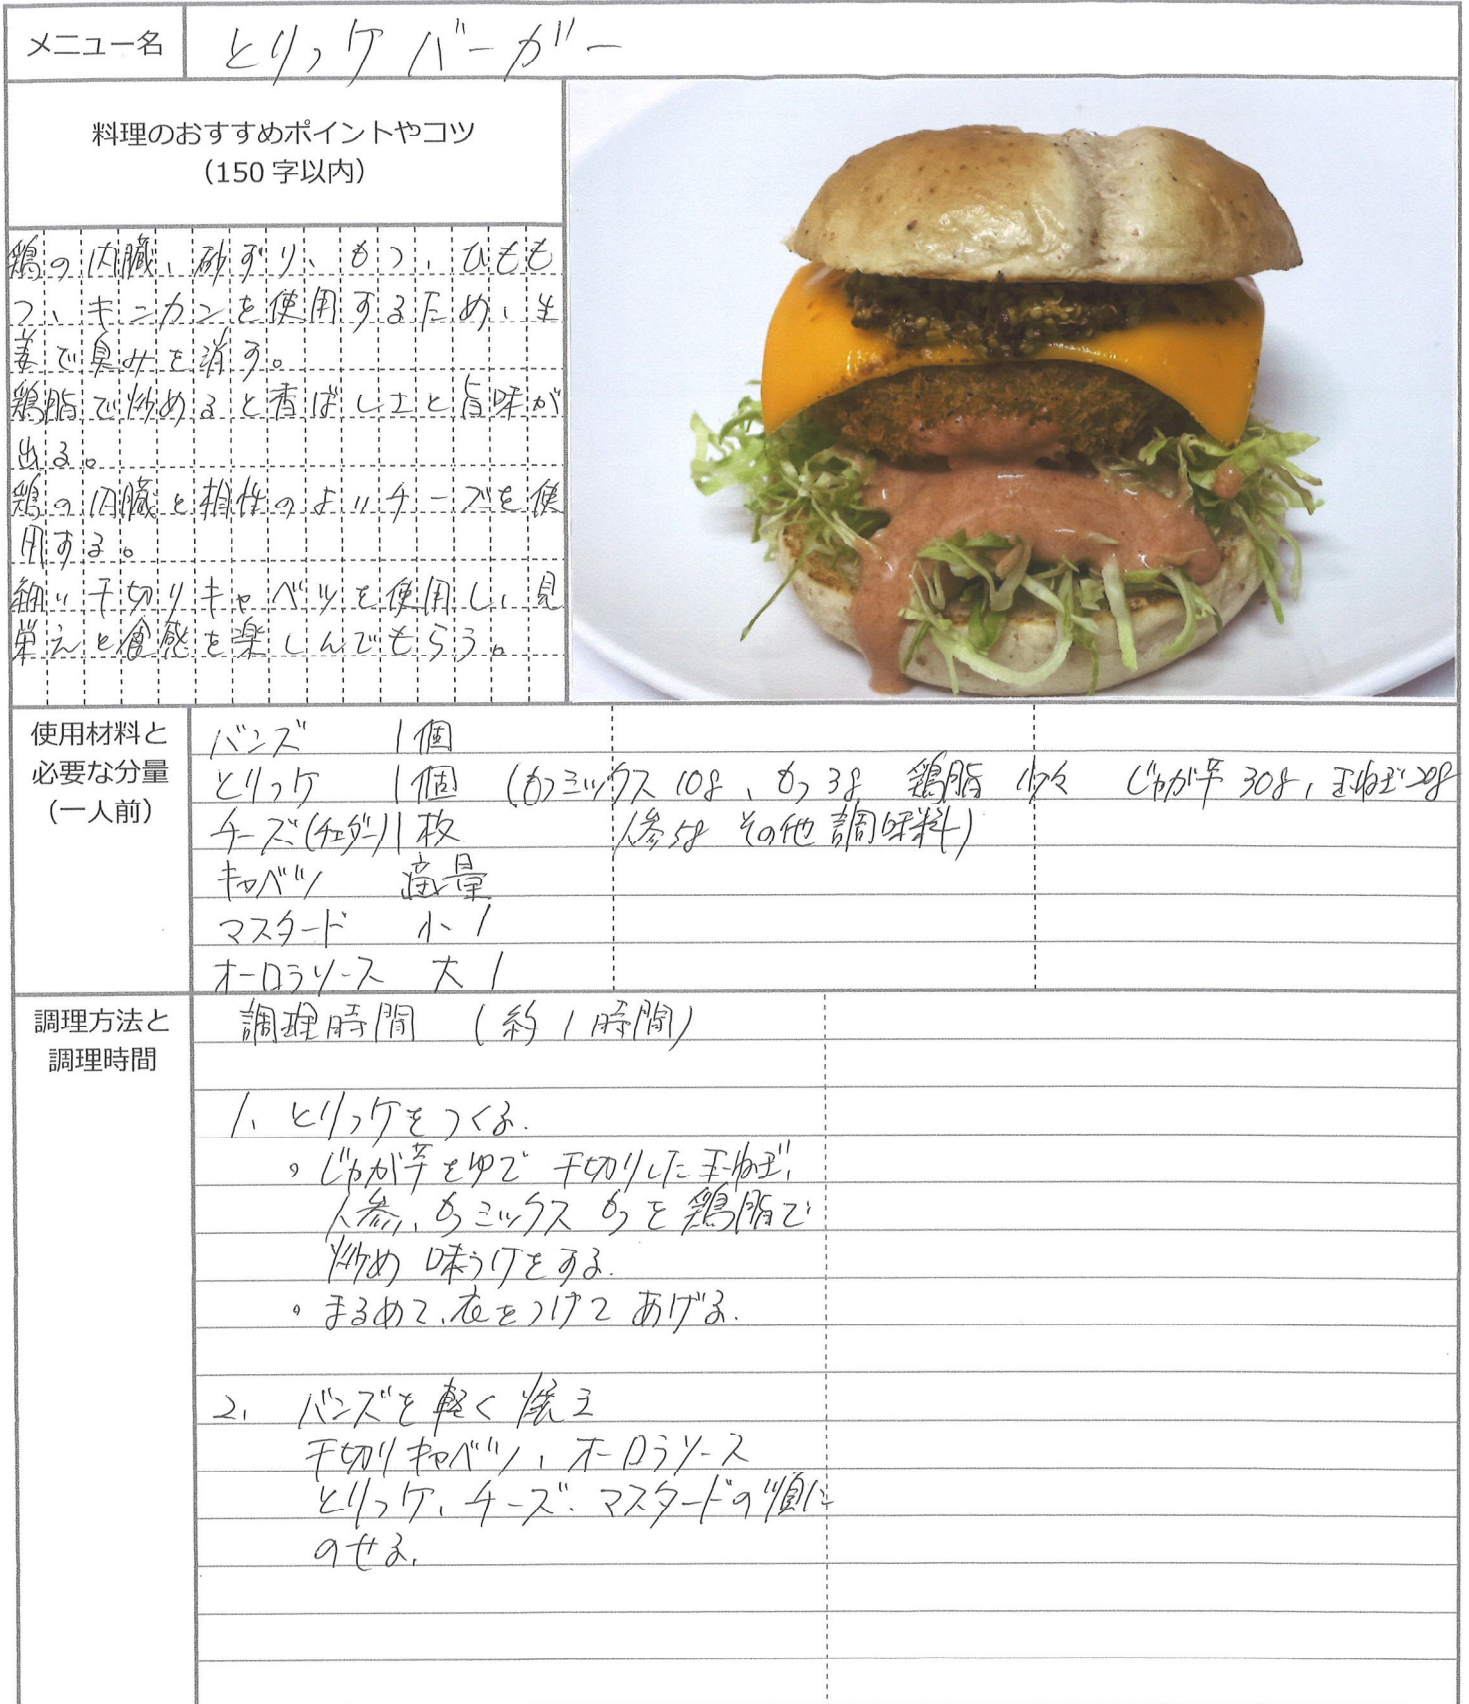 メニュー名
とりっケバーガー
料理のおすすめポイントやコツ
（150 字以内）
鶏の内臓、砂ずり、もつ、ひもも
つ、キンカンを使用するため、生
姜で臭みを消す。
鶏脂で炒めると香ばしさと旨味が
出る。
鶏の内臓と相性のよいチーズを使
用する。
細い千切りキャベツを使用し、見
栄えと食感を楽しんでもらう。
使用材料と
必要な分量
（一人前）
バンズ 1個
とりっケ 1個 (もつミックス 10g、もつ 3g 鶏脂 少々 じゃが芋 30g、玉ねぎ 20g
チーズ(チェダー) 1枚 人参5g その他調味料)
キャベツ 適量
マスタード 小 1
オーロラソース 大 1
調理方法と
調理時間
調理時間 (約1時間)
1、とりっケをつくる.
。じゃが芋をゆで 千切りした玉ねぎ、
人参、もつミックス もつを鶏脂で
炒め 味つけをする.
。まるめて、衣をつけて あげる.
2、 バンズを軽く焼き
千切りキャベツ、オーロラソース
とりっケ、チーズ、マスタードの順に
のせる.